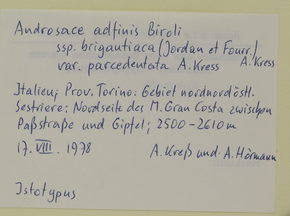 Androsace adfinis Biroli
ssp. brigantiaca (Jordan et Fourr.)
var. parcedentata A. Kress A. Kress
Italien; Prov. Torino: Gebiet nordnordöstl.
Sestriere: Nordseite des M. Gran Costa zwischen
Paßstraße und Gipfel; 2500-2610 m
17. VIII. 1978 A. Kreß und A. Hörmann
Isotypus